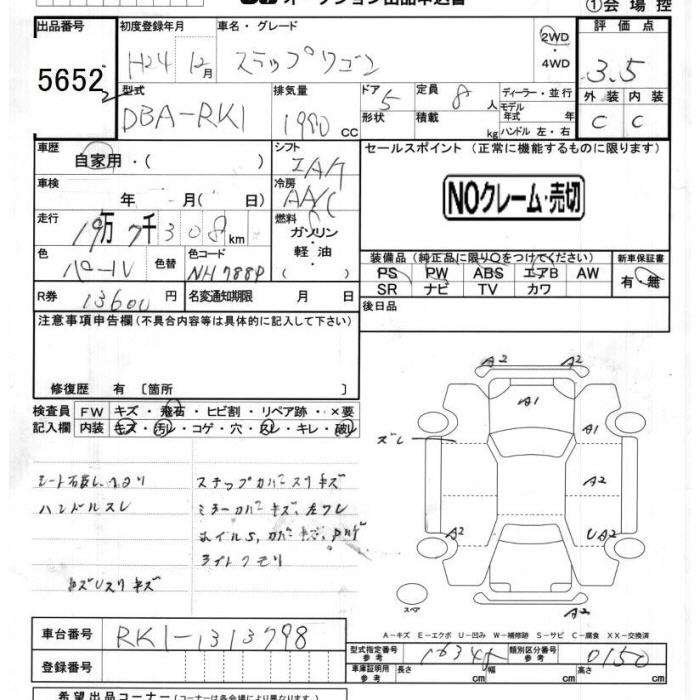 オークション出品申込書
①会場控
出品番号 5652
初度登録年月 H24 12月
車名・グレード ステップワゴン
2WD ・4WD
評価点 3.5
外装 C 内装 C
型式 DBA-RK1
排気量 1980 CC
ドア 5 形状
定員 8 人 積載 kg
ディーラー・並行
モデル年式 年
ハンドル 左・右
車歴 自家用・( )
シフト IA/T
セールスポイント(正常に機能するものに限ります)
車検 年 月( 日)
冷房 AA/C
NOクレーム・売切
走行 19万7千308km
燃料 ガソリン・軽油・( )
色 パール 色替
色コード NH788P
装備品(純正品に限り○をつけてください)
PS PW ABS エアB AW
SR ナビ TV カワ
新車保証書 有・無
R券 13600円
名変通知期限 月 日
後日品
注意事項申告欄(不具合内容等は具体的に記入して下さい)
修復歴 有〔箇所 〕
検査員記入欄
FW キズ・飛石・ヒビ割・リペア跡・×要
内装 キズ・汚レ・コゲ・穴・スレ・キレ・破レ
ハンドルスレ
ステップカバースリキズ
ミラーカバーキズ、左ワレ
ライトクモリ
A2 A2
A1
ズレ A1
A2
A2 UA2
スペア
A2
A-キズ E-エクボ U-凹み W-補修跡 S-サビ C-腐食 XX-交換済
車台番号 RK1-1313798
型式指定番号 参考 16345
類別区分番号 参考 0150
登録番号
車庫証明用 参考 長さ cm 幅 cm 高さ cm
希望出品コーナー(コーナーは各会場により異なります。)